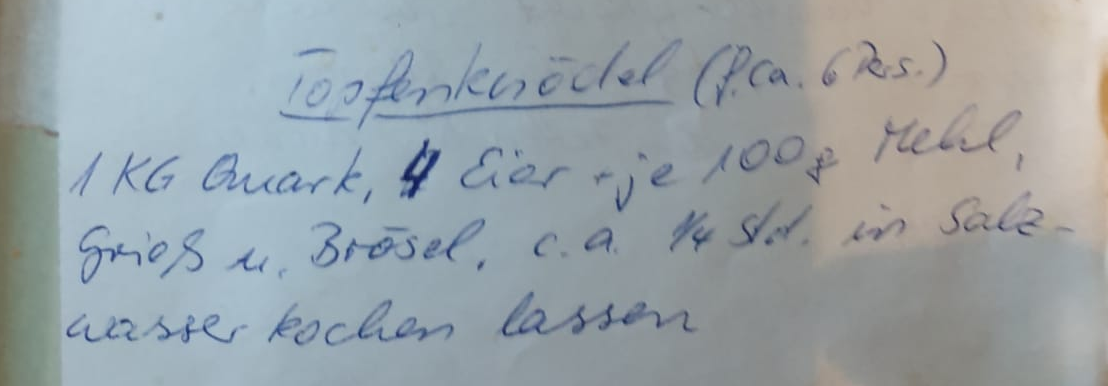 Topfenknödel (f. ca. 6 Pers.)
1 KG Quark, 4 Eier + je 100g Mehl,
Grieß u. Brösel, c.a. 1/4 Std. in Salz-
wasser kochen lassen